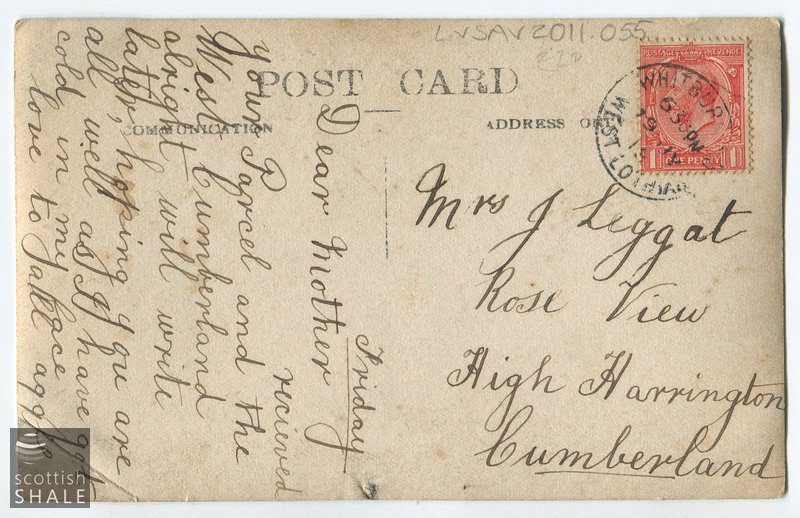 LVSAV2011.055
POST CARD
COMMUNICATION
ADDRESS ONLY
POSTAGE REVENUE
1 ONE PENNY 1
WHITBUR
6 30 PM
19
WEST LOTHIAN
Mrs J Leggat
Rose View
High Harrington
Cumberland
Friday
Dear Mother
recieved
your Parcel and the
West Cumberland
alright will write
later, hoping you are
all well as I have got
cold in my face
love to all
scottish
SHALE